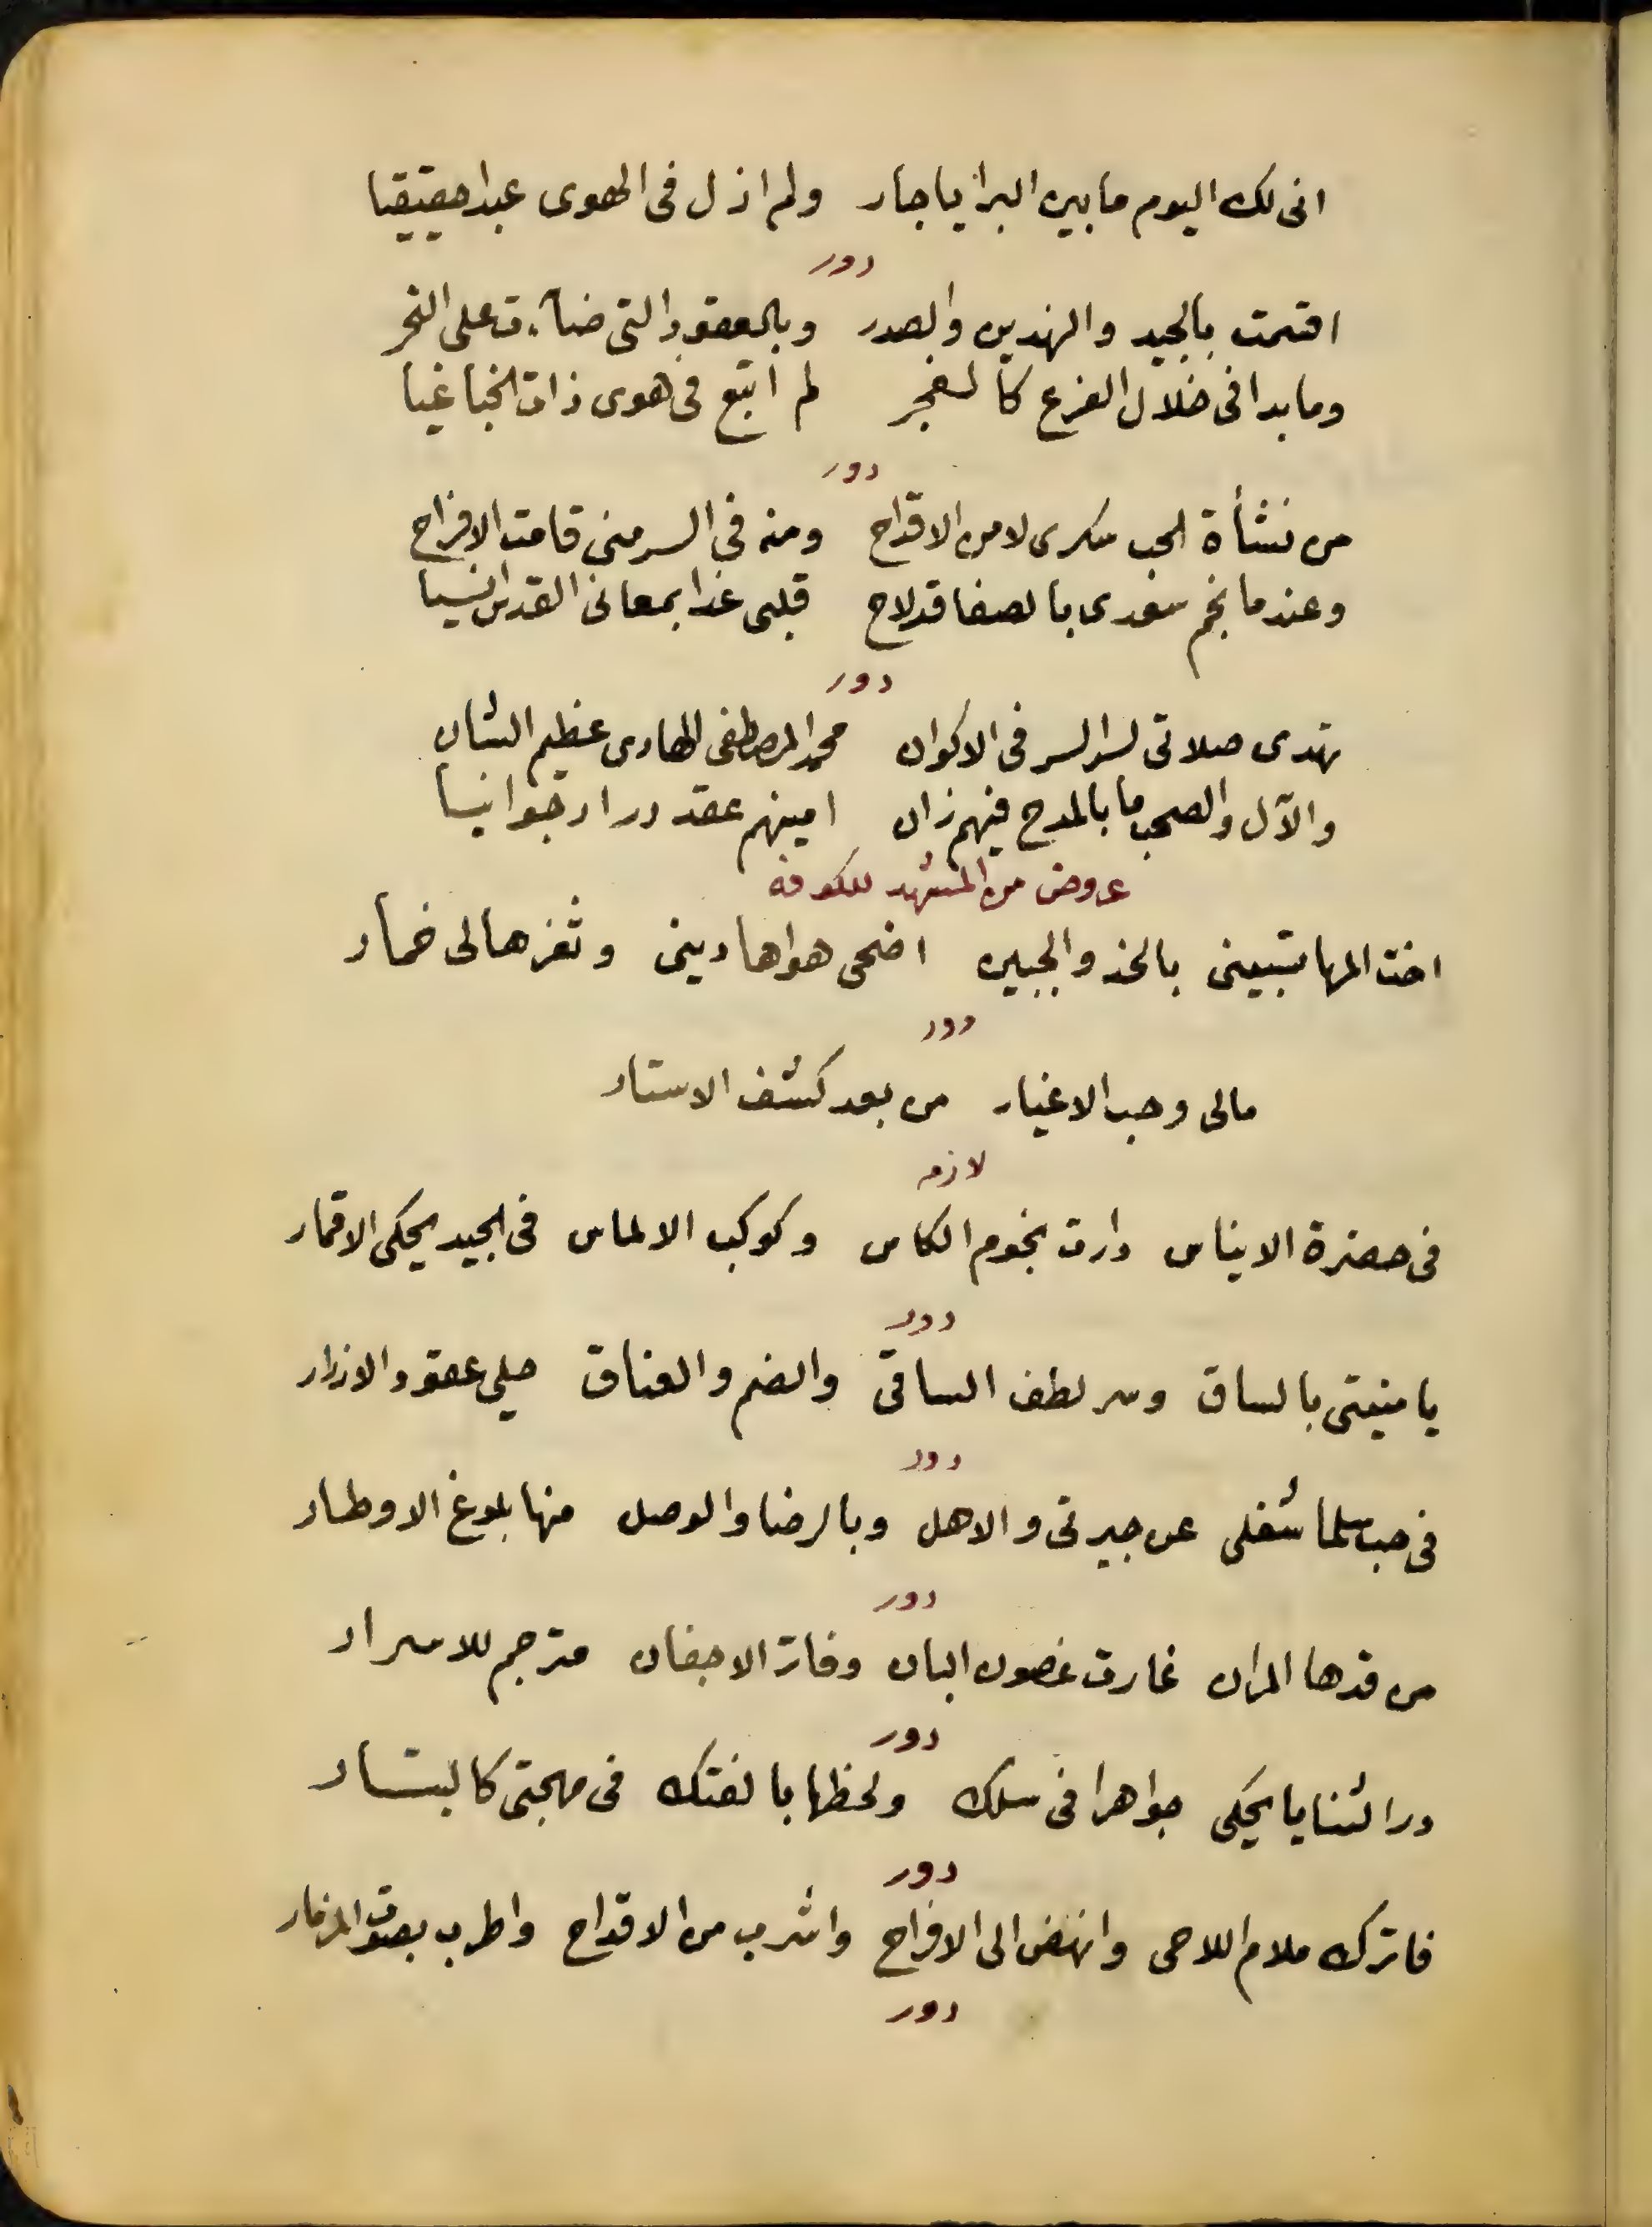 انى لك اليوم ما بين البرايا جار ولم ازل فى الهوى عبدا حقيقيا
دور
اقسمت بالجيد والنهدين والصدر وبالعقود التى ضآءت على النحر
وما بدا فى خلال الفرع كالفجر لم اتبع فى هوى ذات الخبا غيا
دور
من نشأة الحب سكرى لا من الاقداح ومنه فى السر منى قامت الافراح
وعندما نجم سعدى بالصفا قد لاح قلبى غدا بمعانى القدس انسيا
دور
تهدى صلاتى لسر السر فى الاكوان محمد المصطفى الهادى عظيم الشان
والآل والصحب ما بالمدح فيهم زان امينهم عقد در ارجوانيا
عروض من المشهد للكوفة
اخت المها تسبينى بالخد والجبين اضحى هواها دينى وثغرها لى خمار
دور
مالى وحب الاغيار من بعد كشف الاستار
لازمه
فى حضرة الايناس دارت نجوم الكاس وكوكب الالماس فى الجيد يحكى الاقمار
دور
يا منيتى بالساق وسر لطف الساقى والضم والعناق حلى عقود الازرار
دور
فى حب سلما شغلى عن جيرتى والاهل وبالرضا والوصل منها بلوغ الاوطار
دور
من قدها المران غارت غصون البان وفاتر الاجفان مترجم للاسرار
دور
در الثنايا يحكى جواهرا فى سلك ولحظها بالفتك فى مهجتى كالبتار
دور
فاترك ملام اللاحى وانهض الى الافراح واشرب من الاقداح واطرب بصوت المزمار
دور